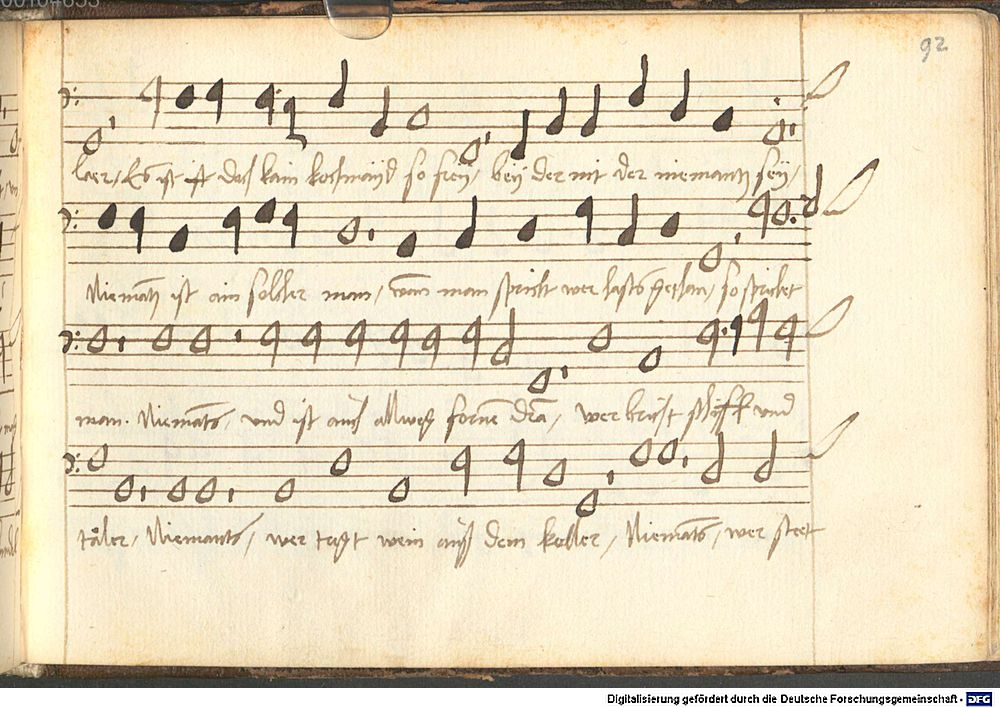 92
laer / Es ist ist das kain kostmaÿd so freÿ / beÿ der nit der niemantz seÿ /
Niemantz ist ain solcher man / wan man spricht wer hasts gethan / so sprichet
man. Niemants / und ist auch allweg fornen dra / wer bricht schüff und
täler / Niemants / wer tregt wein auß dem keller / Niemants / wer steet
Digitalisierung gefördert durch die Deutsche Forschungsgemeinschaft - DFG